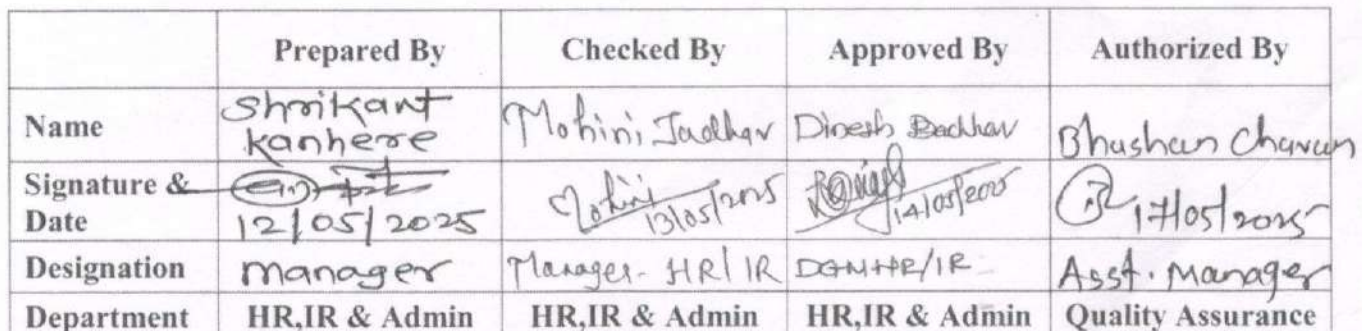 Prepared By Checked By Approved By Authorized By
Name Shrikant Kanhere Mohini Jadhav Dinesh Badhav Bhushan Chavan
Signature & Date 12/05/2025 Mohini 13/05/2025 14/05/2025 17/05/2025
Designation Manager Manager- HR/IR DGM HR/IR Asst. Manager
Department HR,IR & Admin HR,IR & Admin HR,IR & Admin Quality Assurance